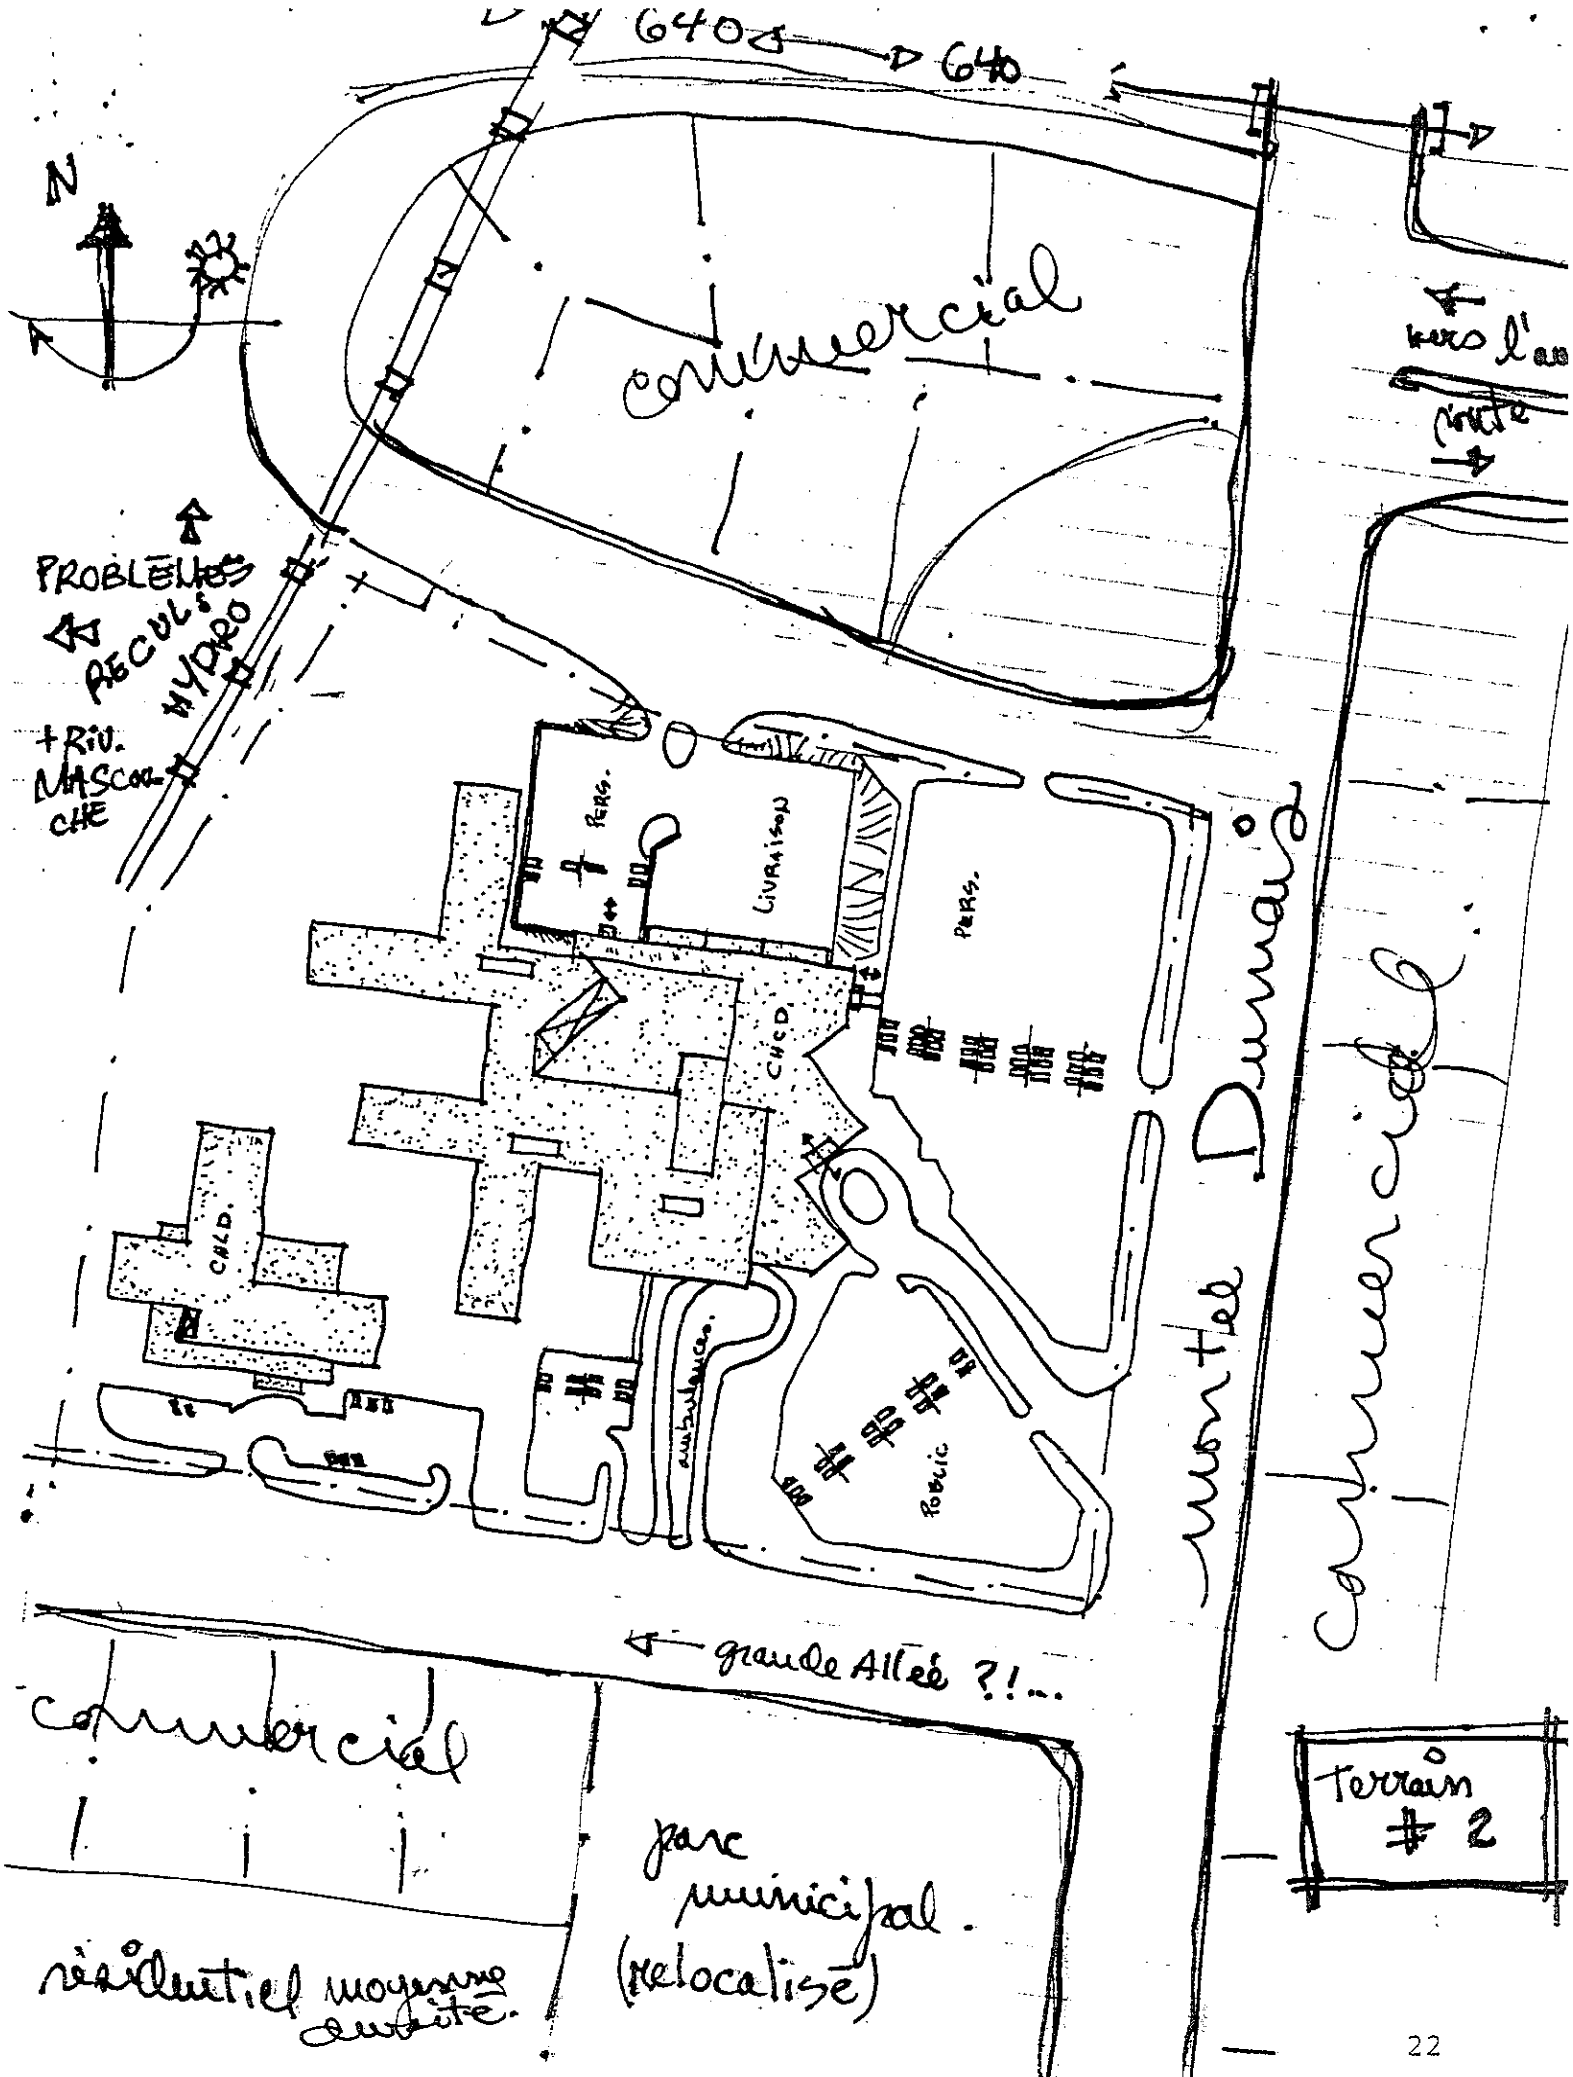 640
640
N
commercial
vers l'au
route
PROBLÈMES
RECULS
HYDRO
+ RIV.
MASCOU-
CHE
PERS.
LIVRAISON
PERS.
CHCD.
CHLD.
ambulances.
PUBLIC
montée Dumais
commercial
grande Allée ?!...
commercial
Terrain
# 2
parc
municipal.
(relocalisé)
résidentiel moyenne
densité.
22